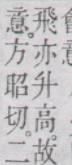 飛亦升高。故
意。方昭切。二